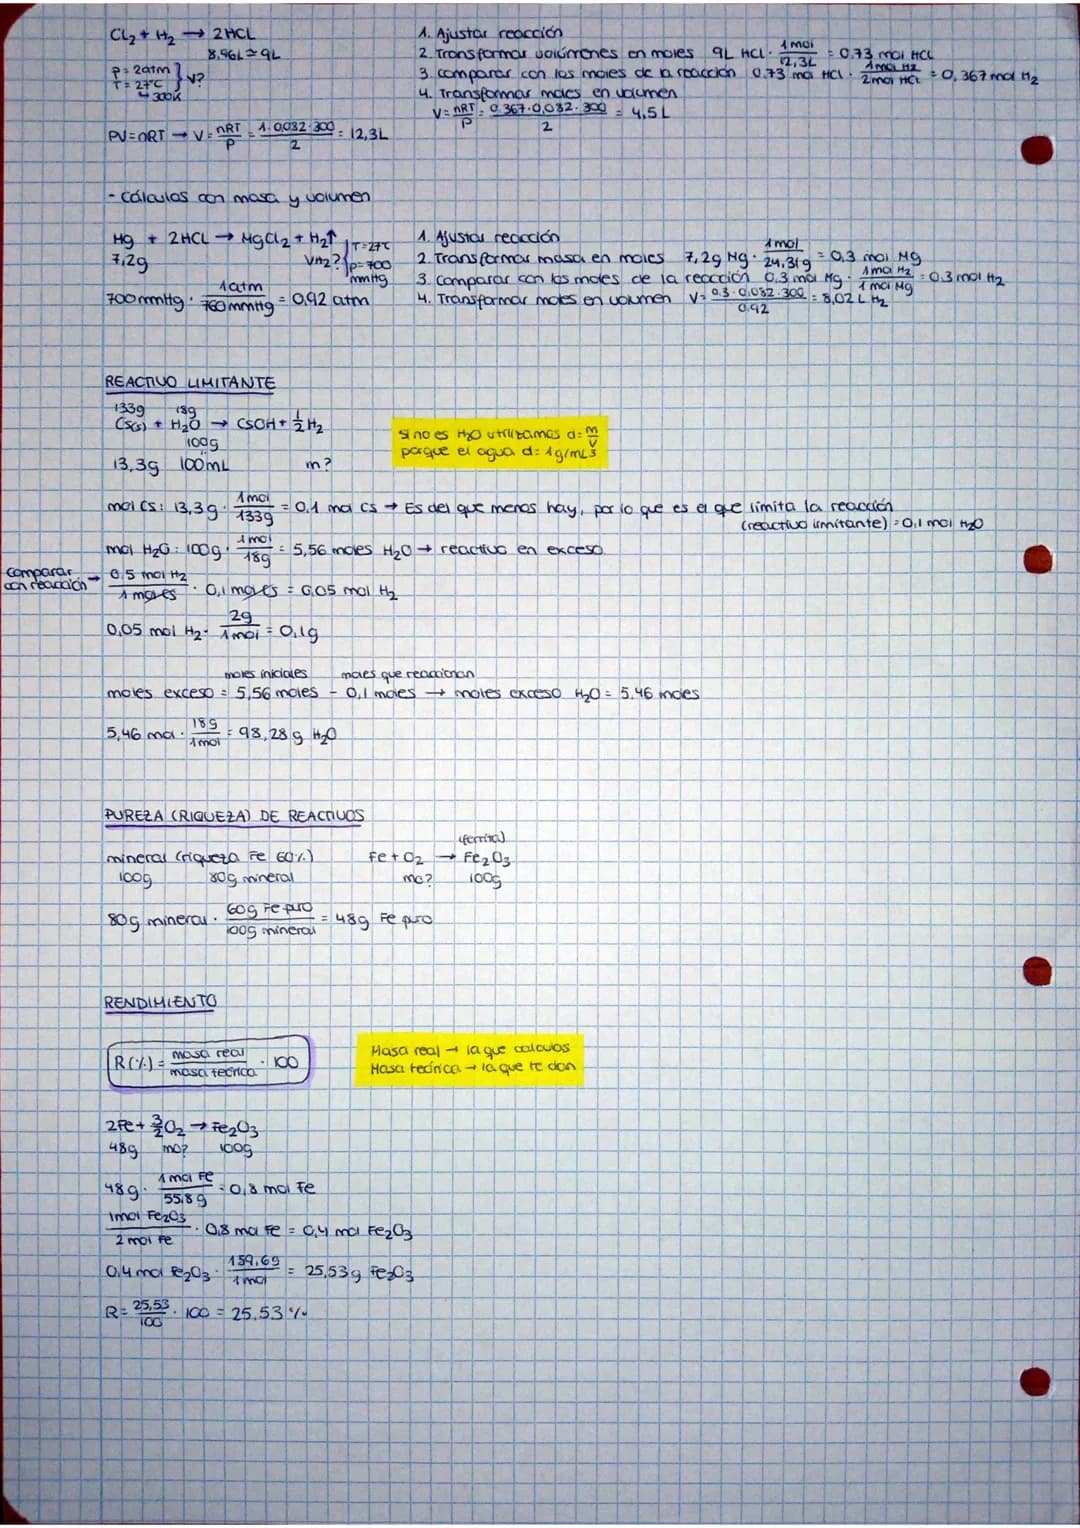 Cl₂ + H₂ → 2HCL
8,96L ≃ 9L
P = 2atm } V?
T = 27ºC
↳ 300K
PV=nRT → V = nRT/P = 1·0,082·300/2 = 12,3L
1. Ajustar reacción
2. Transformar volúmenes en moles 9L HCL · 1mol/12,3L = 0,73 mol HCL
3. comparar con los moles de la reacción 0,73 mol HCl · 1mol H2/2mol HCL = 0,367 mol H₂
4. Transformar moles en volumen
V = nRT/P = 0,367·0,082·300/2 = 4,5L
- Cálculos con masa y volumen
Mg + 2HCL → MgCl₂ + H₂↑ T=27ºC
7,2g VH₂? P=700 mmHg
700mmHg · 1atm/760mmHg = 0,92 atm
1. Ajustar reacción
2. Transformar masa en moles 7,2g Mg · 1mol/24,31g = 0,3 mol Mg
3. Comparar con los moles de la reacción 0,3 mol Mg · 1mol H₂/1mol Mg = 0,3 mol H₂
4. Transformar moles en volumen V = 0,3·0,082·300/0,92 = 8,02 L H₂
REACTIVO LIMITANTE
133g 18g
Cs(s) + H₂O → CSOH + ½ H₂
100g
13,3g 100mL m?
Si no es H₂O utilizamos d = m/V
porque el agua d = 1g/mL
mol Cs: 13,3g · 1mol/133g = 0,1 mol Cs → Es del que menos hay, por lo que es el que limita la reacción
(reactivo limitante) = 0,1 mol H₂O
mol H₂O: 100g · 1mol/18g = 5,56 moles H₂O → reactivo en exceso
comparar con reacción → 0,5 mol H₂/1 moles · 0,1 moles = 0,05 mol H₂
0,05 mol H₂ · 2g/1mol = 0,1g
moles iniciales moles que reaccionan
moles exceso = 5,56 moles - 0,1 moles → moles exceso H₂O = 5,46 moles
5,46 mol · 18g/1mol = 98,28 g H₂O
PUREZA (RIQUEZA) DE REACTIVOS
(ferrita)
mineral (riqueza Fe 60%) Fe + O₂ → Fe₂O₃
100g 80g mineral mo? 100g
80g mineral · 60g Fe puro/100g mineral = 48g Fe puro
RENDIMIENTO
R(%) = masa real/masa teórica · 100
Masa real → la que calculas
Masa teórica → la que te dan
2Fe + 3/2 O₂ → Fe₂O₃
48g mo? 100g
48g · 1mol Fe/55,8g = 0,8 mol Fe
1mol Fe₂O₃/2mol Fe · 0,8 mol Fe = 0,4 mol Fe₂O₃
0,4 mol Fe₂O₃ · 159,6g/1mol = 25,53g Fe₂O₃
R = 25,53/100 · 100 = 25,53 %